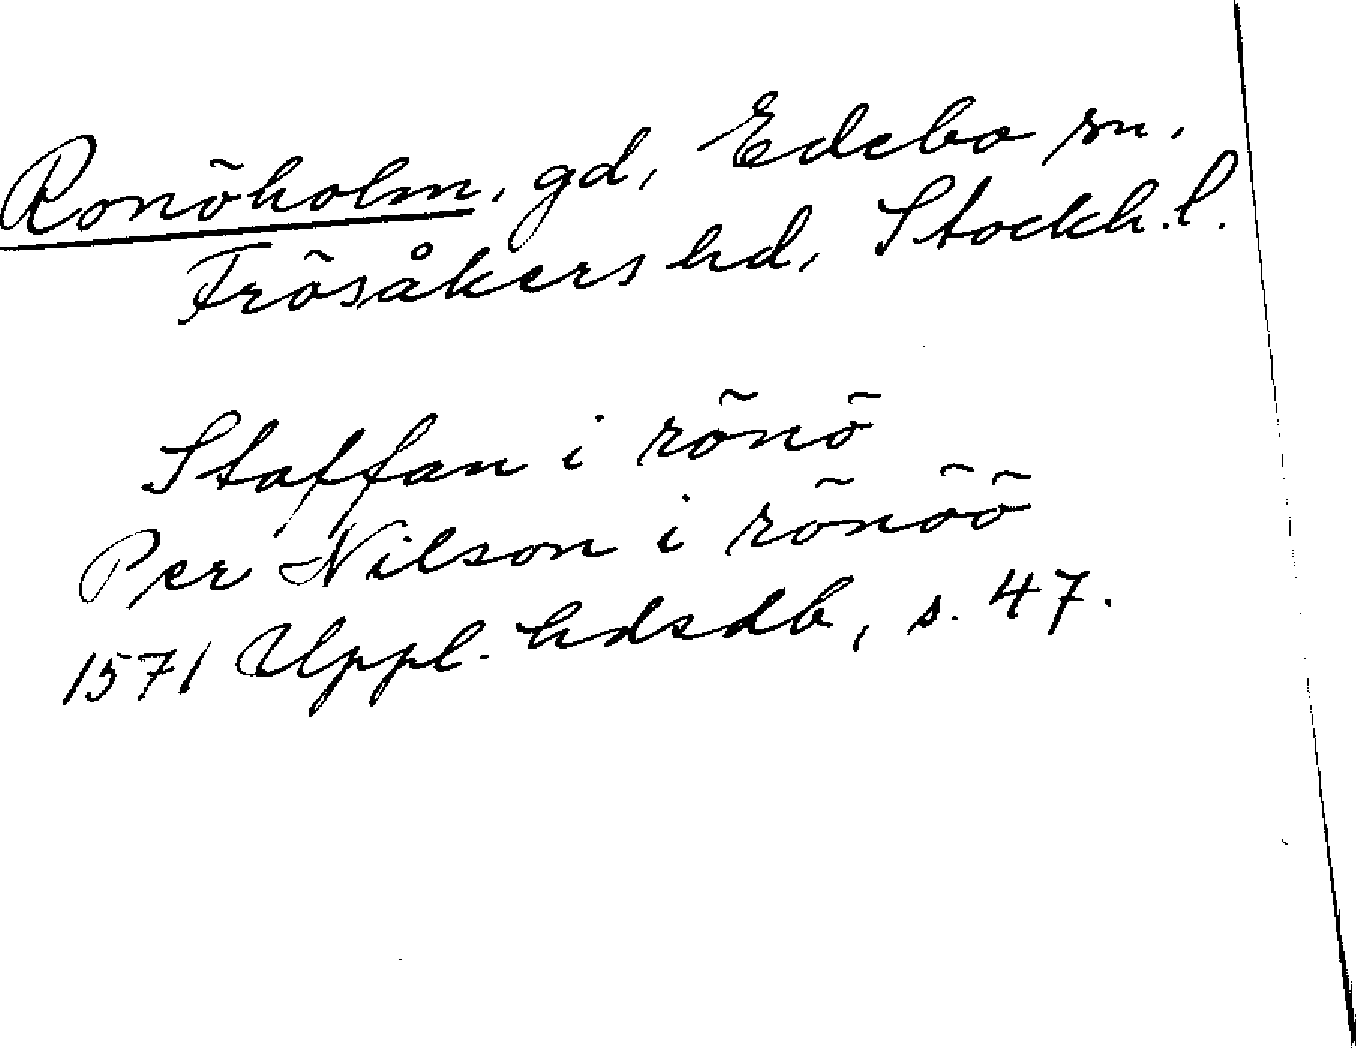 Ronöholm, gd, Edebo sn.
Frösåkers hd, Stockh. l.
Staffan i rönö
Per Nilson i rönöö
1571 Uppl. hdsdb, s. 47.